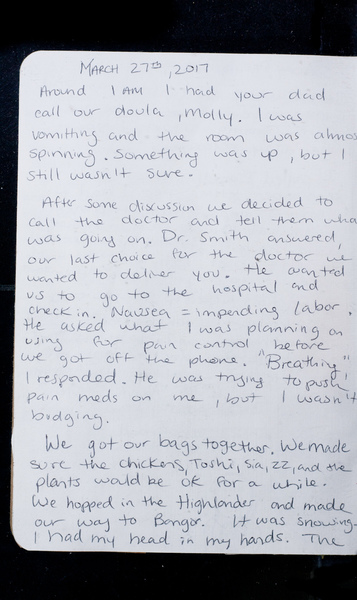 MARCH 27TH, 2017
Around 1 AM I had your dad
call our doula, Molly. I was
vomitting and the room was almos
spinning. Something was up, but I
still wasn't sure.
After some discussion we decided to
call the doctor and tell them wha
was going on. Dr. Smith answered,
our last choice for the doctor we
wanted to deliver you. He wanted
us to go to the hospital and
check in. Nausea = impending labor.
He asked what I was planning on
using for pain control before
we got off the phone. "Breathing"
I responded. He was trying to push
pain meds on me, but I wasn't
budging.
We got our bags together. We made
sure the chickens, Toshi, Sia, ZZ, and the
plants would be OK for a while.
We hopped in the Highlander and made
our way to Bangor. It was snowing.
I had my head in my hands. The